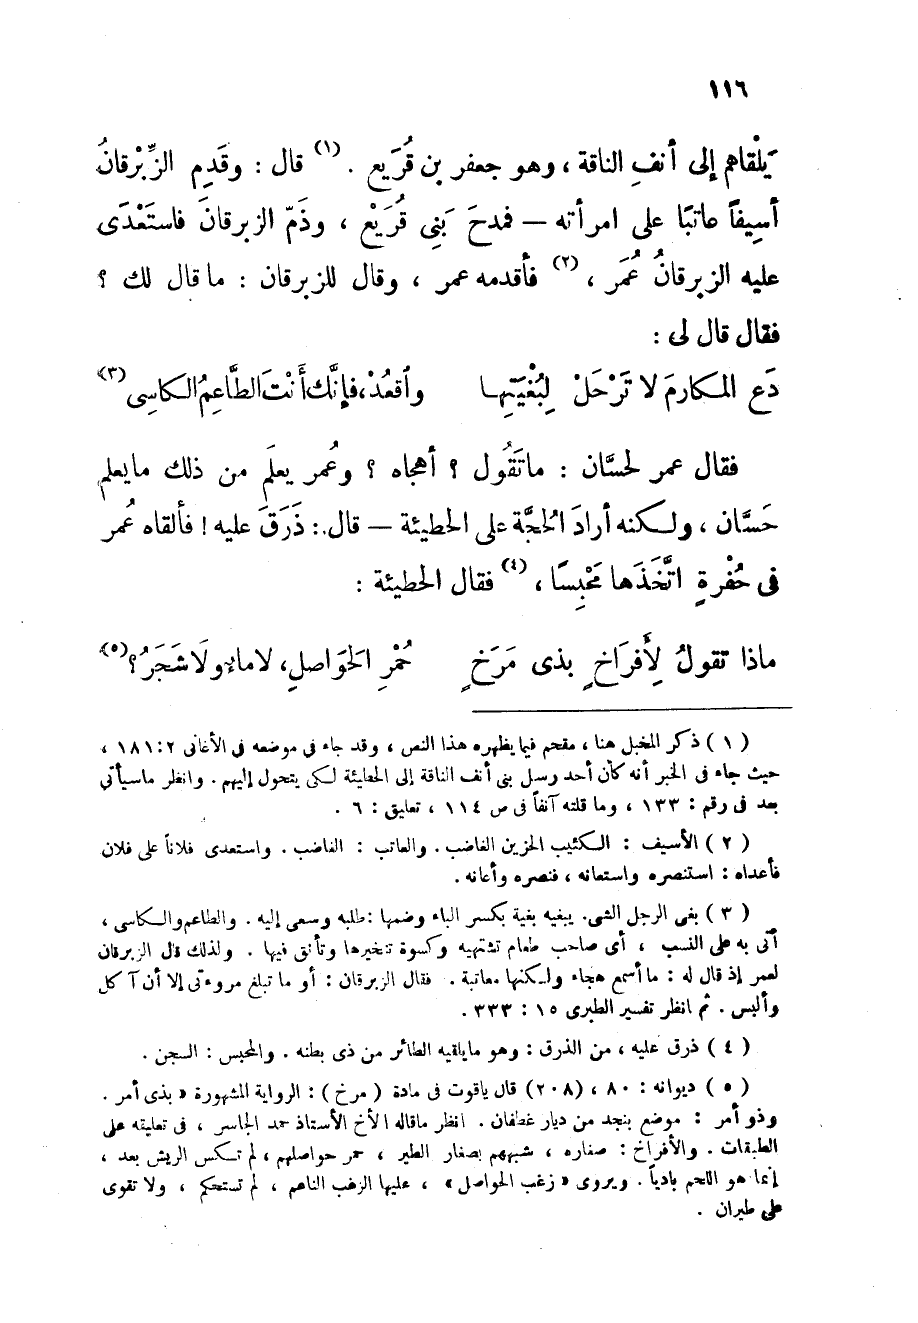 ١١٦
يَلْقاهم إلى أنفِ الناقة ، وهو جعفر بن قُرَيع . (١) قال : وقَدِم الزِّبْرِقانُ
أسِيفًا عاتبًا على امرأته — فمدحَ بَنِى قُرَيْع ، وذَمّ الزبرقانَ فاستَعْدَى
عليه الزبرقانُ عُمَر ، (٢) فأقدمه عمر ، وقال للزبرقان : ما قال لك ؟
فقال قال لى :
دَع المكارمَ لا تَرْحَلْ لِبُغْيَتِها وأقعُدْ، فإنَّك أَنْتَ الطَّاعِمُ الكاسِى (٣)
فقال عمر لحسَّان : ما تَقُول ؟ أهجاه ؟ وعُمر يعلَم من ذلك ما يعلم
حَسَّان ، ولكنه أرادَ الحجَّة على الحطيئة — قال : ذَرَقَ عليه ! فألقاه عُمر
فى حُفْرةٍ اتَّخَذَها مَحْبِسًا ، (٤) فقال الحطيئة :
ماذا تقولُ لِأَفرَاخٍ بذى مَرَخٍ حُمْرِ الحَوَاصلِ، لا ماءٌ ولَا شَجَرُ؟ (٥)
( ١ ) ذكر المخبل هنا ، مقحم فيما يظهره هذا النص ، وقد جاء فى موضعه فى الأغانى ٢ : ١٨١ ،
حيث جاء فى الخبر أنه كان أحد رسل بنى أنف الناقة إلى الحطيئة لكى يتحول إليهم . وانظر ما سيأتى
بعد فى رقم : ١٣٣ ، وما قلته آنفاً فى ص ١١٤ ، تعليق : ٦ .
( ٢ ) الأسيف : الكئيب الحزين الغاضب . والعاتب : الغاضب . واستعدى فلاناً على فلان
فأعداه : استنصره واستعانه ، فنصره وأعانه .
( ٣ ) بغى الرجل الشى. يبغيه بغية بكسر الباء وضمها : طلبه وسعى إليه . والطاعم والكاسى ،
أتى به على النسب ، أى صاحب طعام تشتهيه وكسوة تتخيرها وتأنق فيها . ولذلك قال الزبرقان
لعمر إذ قال له : ما أسمع هجاء ولكنها معاتبة . فقال الزبرقان : أو ما تبلغ مروءتى إلا أن آكل
وألبس . ثم انظر تفسير الطبرى ١٥ : ٣٣٣ .
( ٤ ) ذرق عليه ، من الذرق : وهو ما يلقيه الطائر من ذى بطنه . والمحبس : السجن .
( ٥ ) ديوانه : ٨٠ ، (٢٠٨) قال ياقوت فى مادة ( مرخ ) : الرواية المشهورة « بذى أمر .
وذو أمر : موضع بنجد من ديار غطفان . انظر ما قاله الأخ الأستاذ حمد الجاسر ، فى تعليقه على
الطبقات . والأفراخ : صغاره ، شبههم بصغار الطير ، حمر حواصلهم ، لم تكس الريش بعد ،
إنما هو اللحم بادياً . ويروى « زغب الحواصل » ، عليها الزغب الناعم ، لم تستحكم ، ولا تقوى
على طيران .